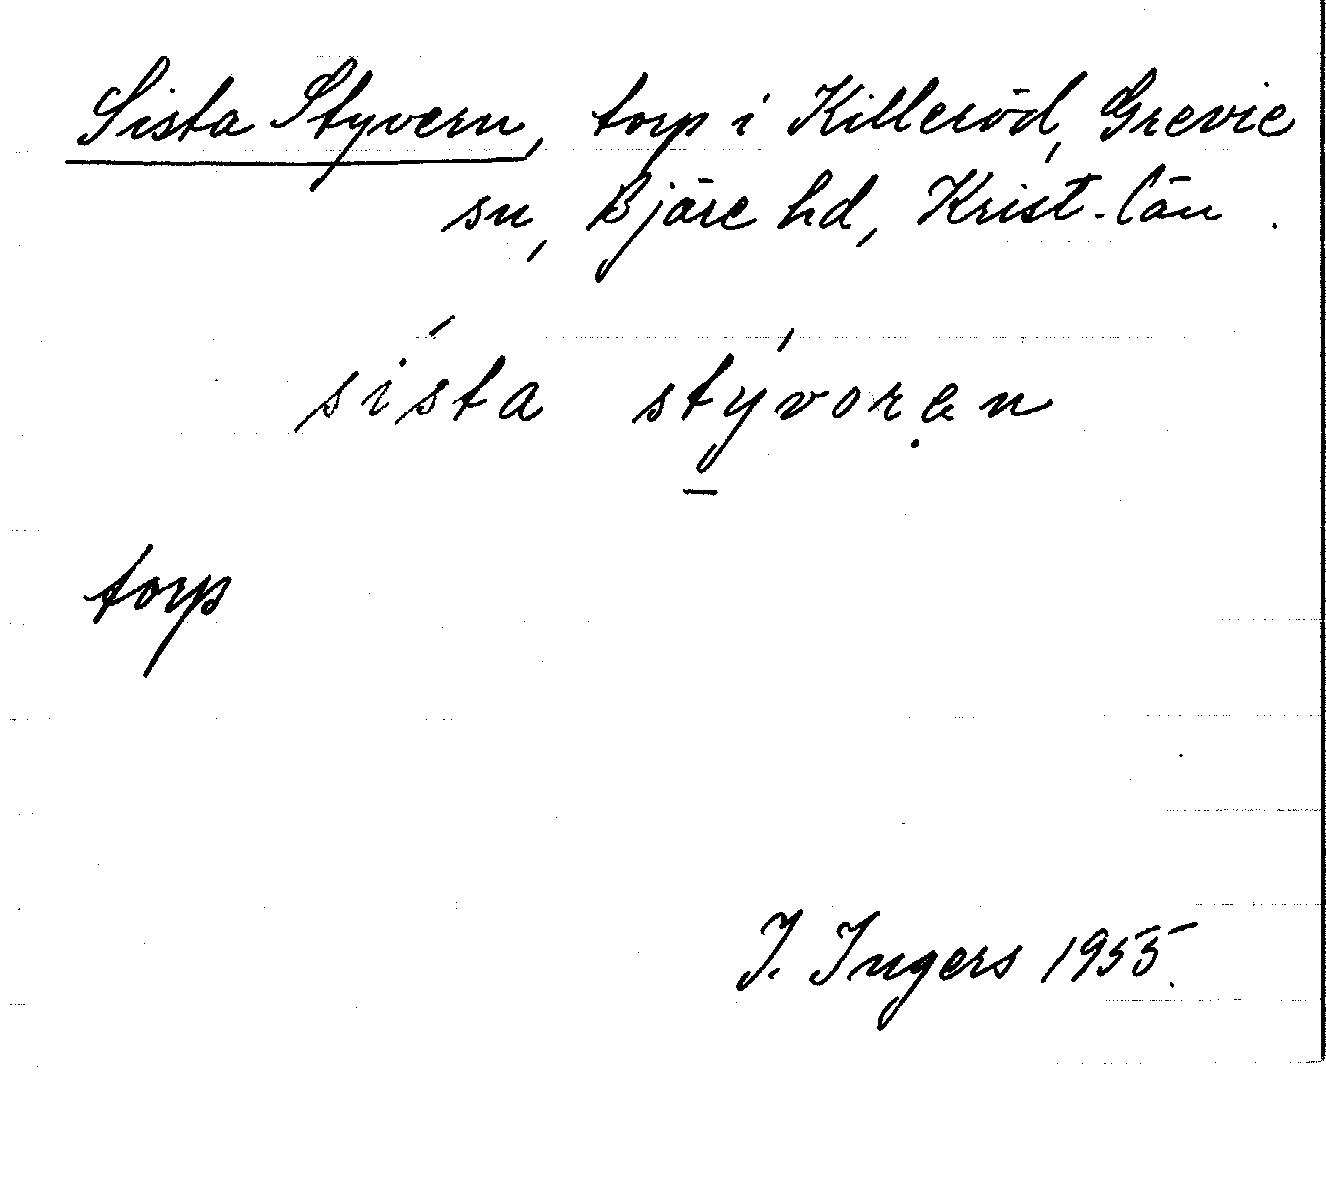 Sista Styvern, torp i Killeröd, Grevie
sn, Bjäre hd, Krist. län.
sísta stývoren
torp
I. Ingers 1955.